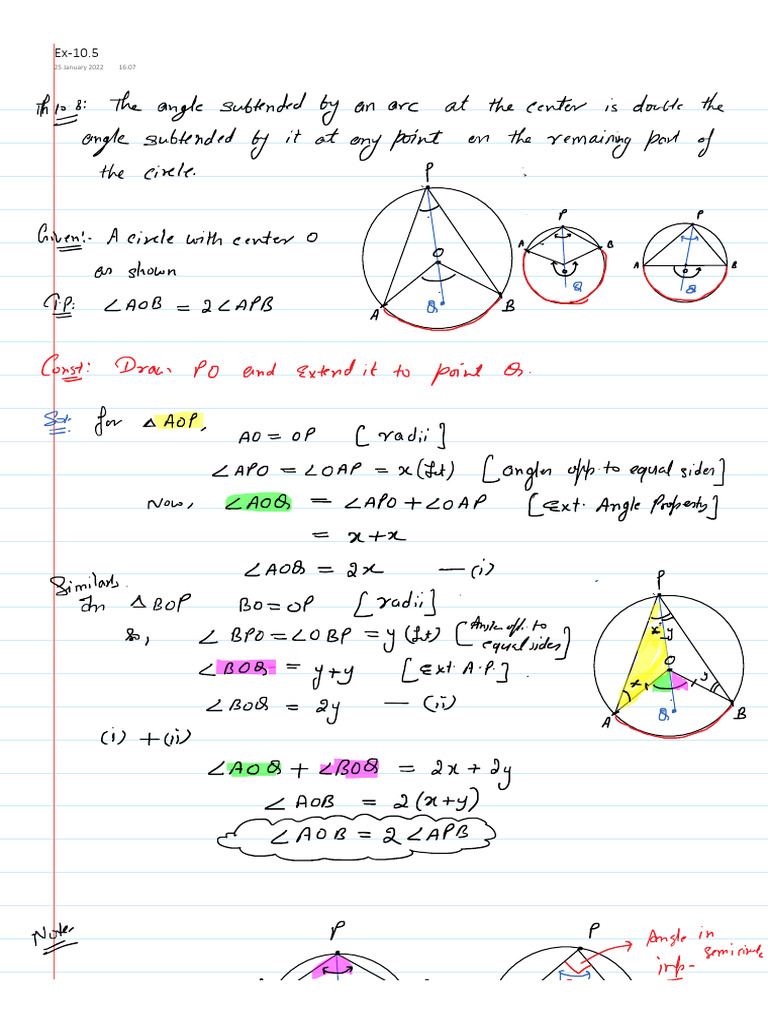 Ex-10.5
25 January 2022 16:07
Th 10.8: The angle subtended by an arc at the center is double the
angle subtended by it at any point on the remaining part of
the circle.
P
P
P
Given:- A circle with center O
O
A
B
O
A
O
B
as shown
Q
Q
T.P: ∠AOB = 2∠APB
A
Q
B
Const: Draw PO and extend it to point Q.
Sol: for △AOP,
AO = OP [radii]
∠APO = ∠OAP = x (let) [angles opp. to equal sides]
Now, ∠AOQ = ∠APO + ∠OAP [Ext. Angle Property]
= x+x
∠AOQ = 2x — (i)
Similarly
In △BOP BO = OP [radii]
P
So, ∠BPO = ∠OBP = y (let) [Angle opp. to equal sides]
x y
∠BOQ = y+y [Ext. A.P.]
O
x y
∠BOQ = 2y — (ii)
A Q B
(i) + (ii)
∠AOQ + ∠BOQ = 2x + 2y
∠AOB = 2(x+y)
∠AOB = 2∠APB
Note:
P
P
Angle in
semicircle
imp-